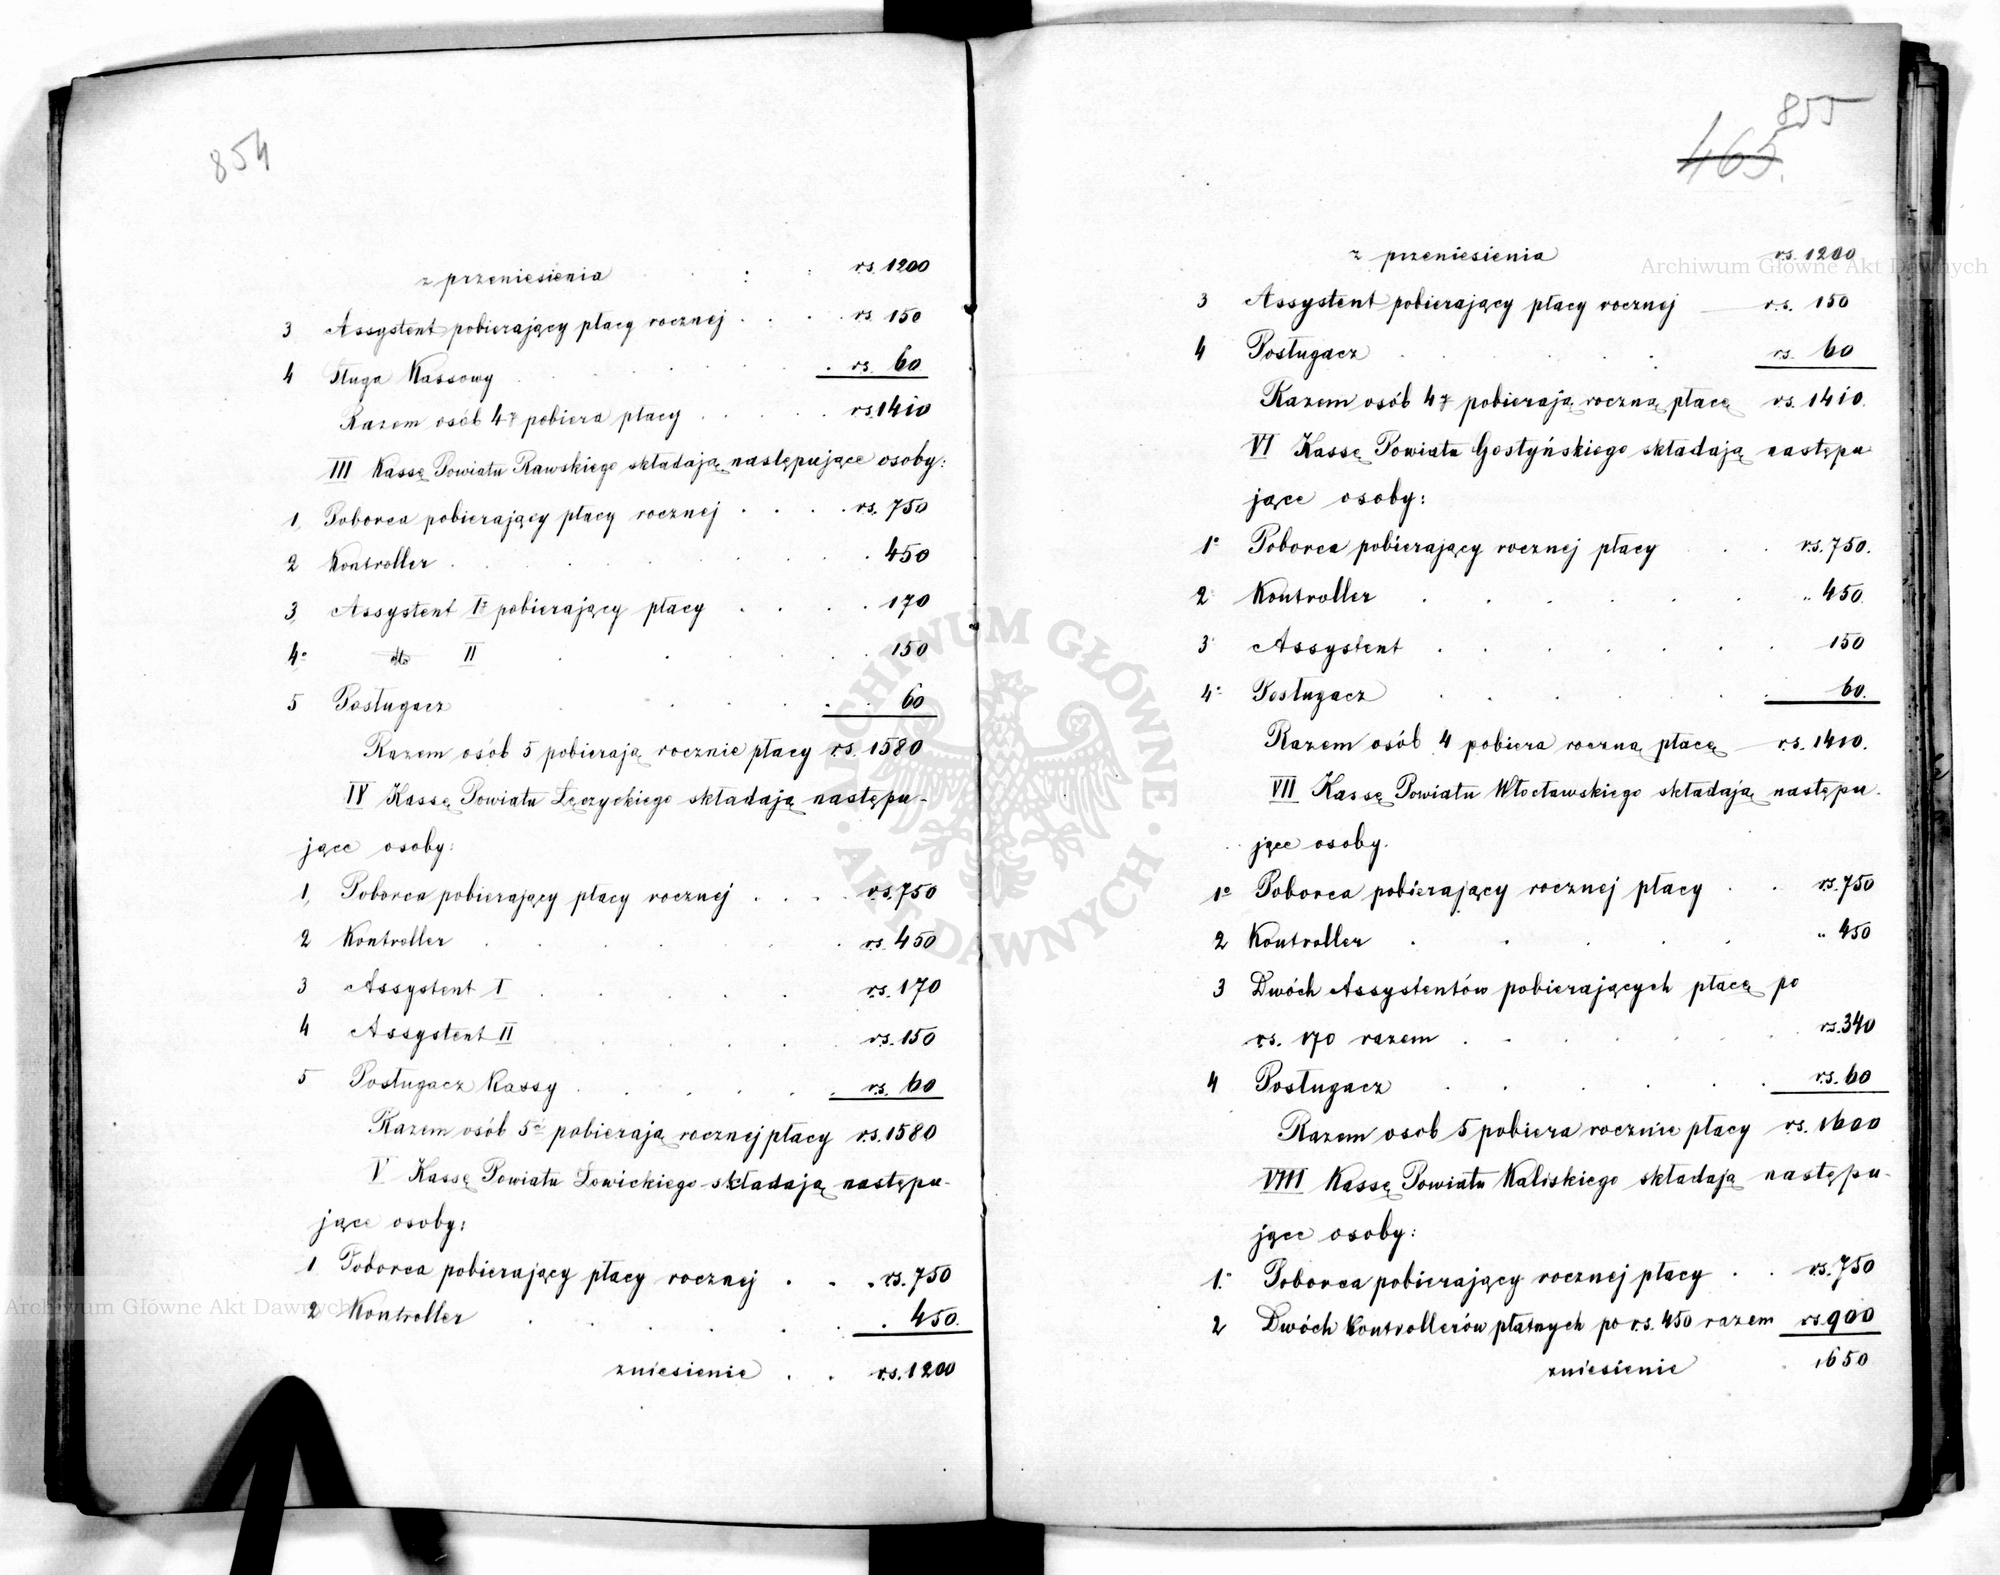 854
z przeniesienia . : . rs. 1200
3 Assystent pobierający płacy rocznej . . . . rs 150
4 Sługa Kassowy . . . . rs. 60
Razem osób 4 pobiera płacy . . . . rs. 1410
III Kassę Powiatu Rawskiego składają następujące osoby:
1, Poborca pobierający płacy rocznej . . . . rs. 750
2 Kontroller . . . . 450
3, Assystent I pobierający płacy . . . . 170
4° dto II . . . . 150
5 Posługacz . . . . 60
Razem osób 5 pobierają rocznie płacy rs. 1580
IV Kassę Powiatu Łęczyckiego składają następu-
jące osoby:
1, Poborca pobierający płacy rocznej . . . . rs. 750
2 Kontroller . . . . rs. 450
3 Assystent I . . . . rs. 170
4 Assystent II . . . . rs. 150
5 Posługacz Kassy . . . . rs. 60
Razem osób 5 pobierają rocznej płacy rs. 1580
V Kassę Powiatu Łowickiego składają następu-
jące osoby:
1 Poborca pobierający płacy rocznej . . . rs. 750
2 Kontroller . . . . 450.
zniesienie . . rs. 1200
855
465.
z przeniesienia rs. 1200
3 Assystent pobierający płacy rocznej rs. 150
4 Posługacz . . . . rs. 60
Razem osób 4 pobierają roczną płacę rs. 1410.
VI Kassę Powiatu Gostyńskiego składają następu
jące osoby:
1° Poborca pobierający rocznej płacy . . rs. 750.
2 Kontroller . . . . „ 450.
3 Assystent . . . . 150
4° Posługacz . . . . 60.
Razem osób 4 pobiera roczną płacę rs. 1410.
VII Kassę Powiatu Włocławskiego składają następu-
jące osoby.
1° Poborca pobierający rocznej płacy . . rs. 750
2 Kontroller . . . . „ 450
3 Dwóch Assystentów pobierających płacę po
rs. 170 razem . . . . rs. 340
4 Posługacz . . . . rs. 60
Razem osob 5 pobiera rocznie płacy rs. 1600
VIII Kassę Powiatu Kaliskiego składają następu-
jące osoby:
1° Poborca pobierający rocznej płacy . . rs. 750
2 Dwóch Kontrollerów płatnych po rs. 450 razem rs. 900
zniesienie . 1650
Archiwum Główne Akt Dawnych
Archiwum Główne Akt Dawnych
ARCHIWUM GŁÓWNE · AKT DAWNYCH ·